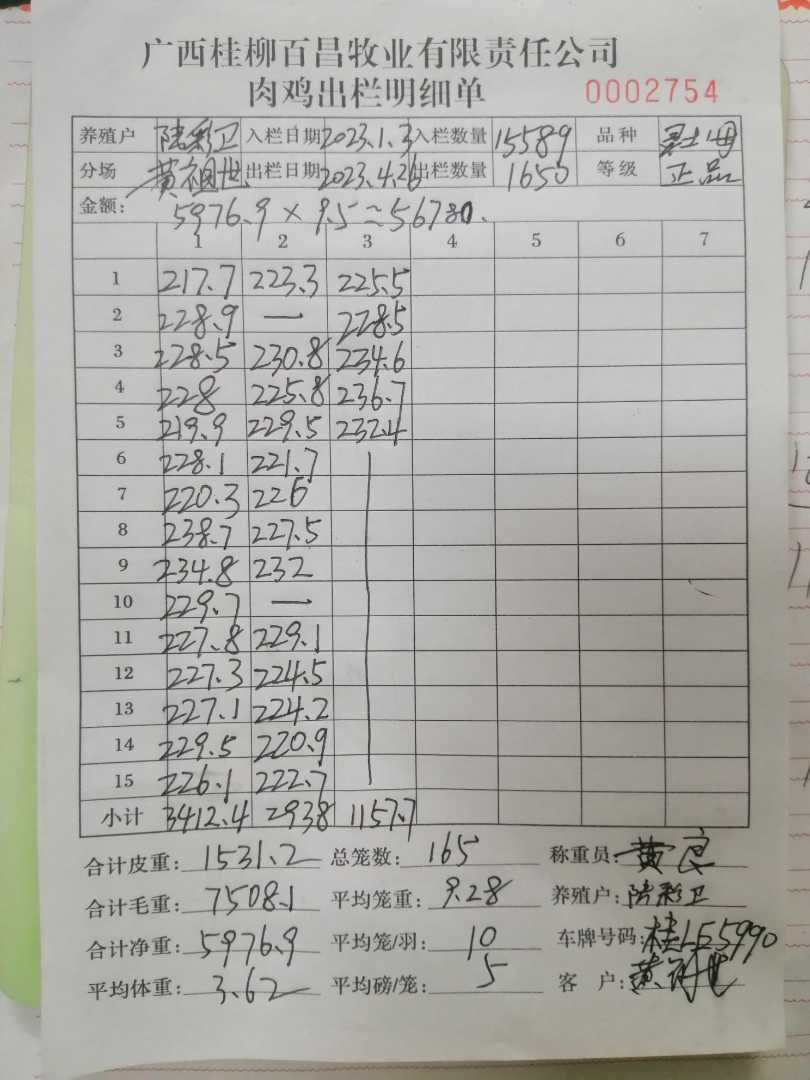 广西桂柳百昌牧业有限责任公司
肉鸡出栏明细单 0002754
养殖户 陆彩卫 入栏日期 2023.1.3 入栏数量 15589 品种
分场 黄祖世 出栏日期 2023.4.26 出栏数量 1650 等级 正品
金额: 5976.9 × 9.5 = 56780.
1 2 3 4 5 6 7
1 217.7 223.3 225.5
2 228.9 — 228.5
3 228.5 230.8 234.6
4 228 225.8 236.7
5 219.9 229.5 232.4
6 228.1 221.7
7 220.3 226
8 238.7 227.5
9 234.8 232
10 229.7 —
11 227.8 229.1
12 227.3 224.5
13 227.1 224.2
14 229.5 220.9
15 226.1 222.7
小计 3412.4 2938 1157.7
合计皮重: 1531.2 总笼数: 165 称重员: 黄良
合计毛重: 7508.1 平均笼重: 9.28 养殖户: 陆彩卫
合计净重: 5976.9 平均笼/羽: 10 车牌号码: 桂LE5990
平均体重: 3.62 平均磅/笼: 5 客户: